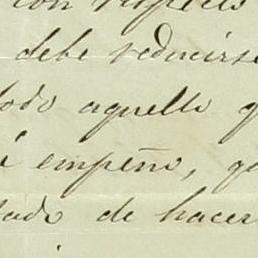 con respecto
debe reducirse
todo aquello q
é empeño, qu
tado de hacer